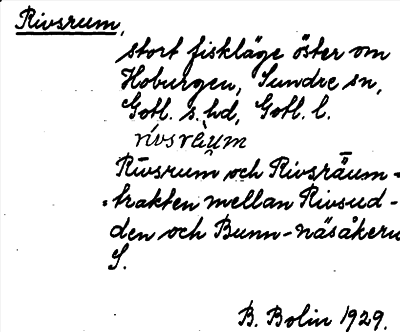 Rivsrum,
stort fiskläge öster om
Hoburgen, Sundre sn,
Gotl. s. hd, Gotl. l.
rívsrè̤um
Rīvsrum och Rivsrāum-
trakten mellan Rivsud-
den och Bunn-näsåkern
S.
B. Bolin 1929.